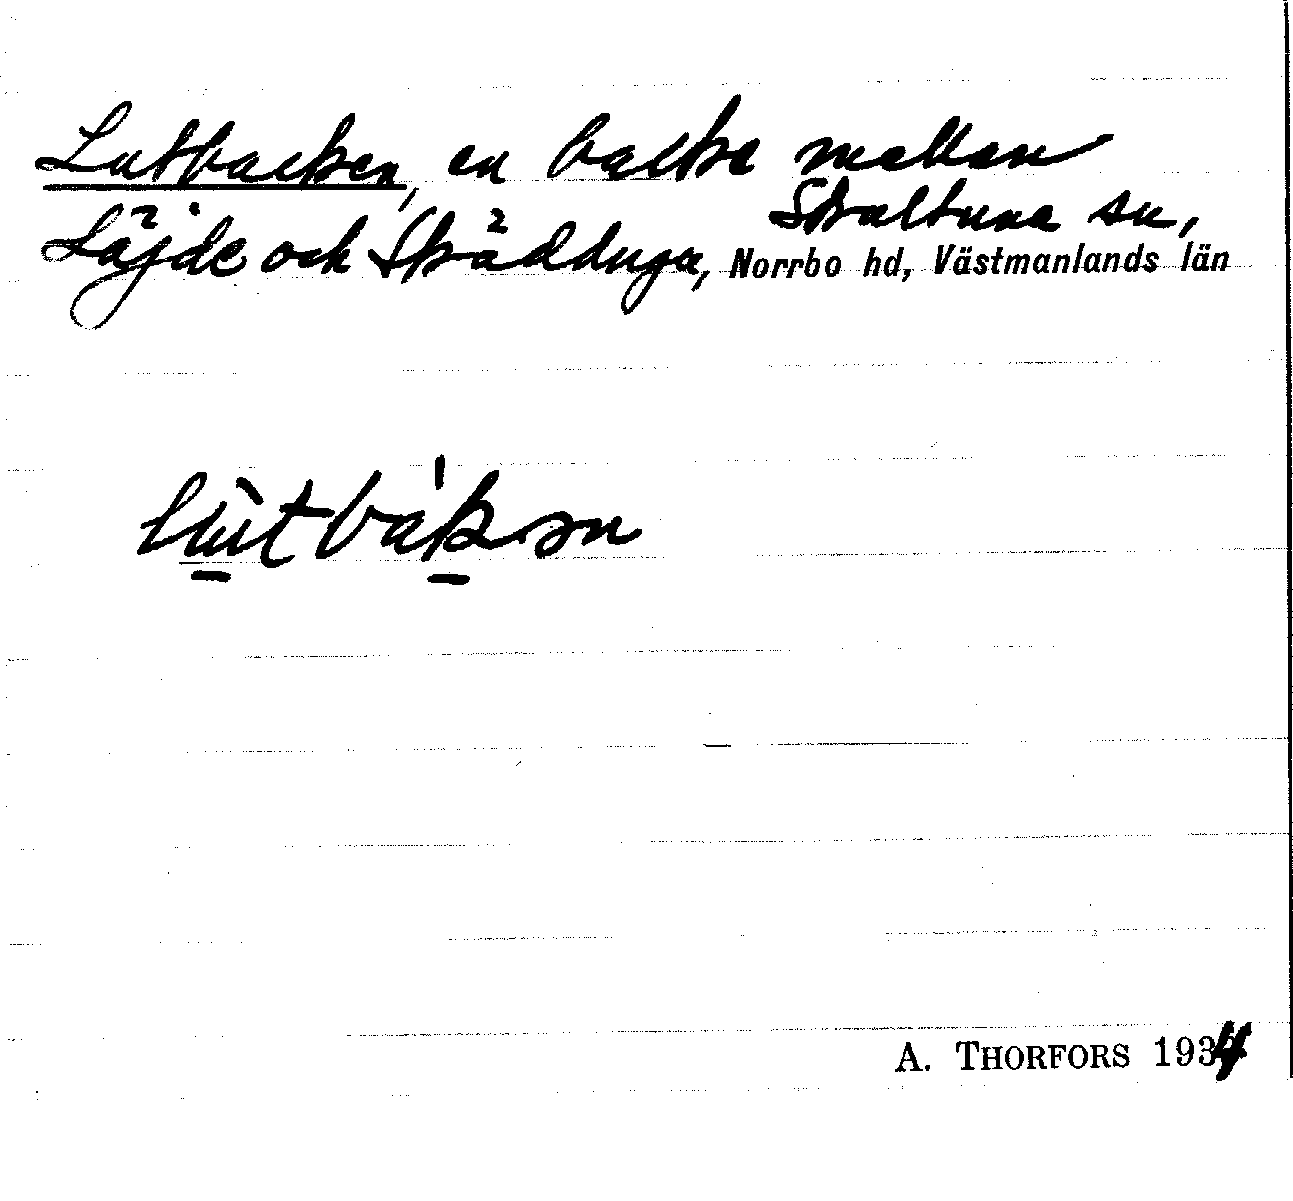 Lutbacken, en backe mellan
Skultuna sn,
Läjde och Skädduga, Norrbo hd, Västmanlands län
A. THORFORS 1934